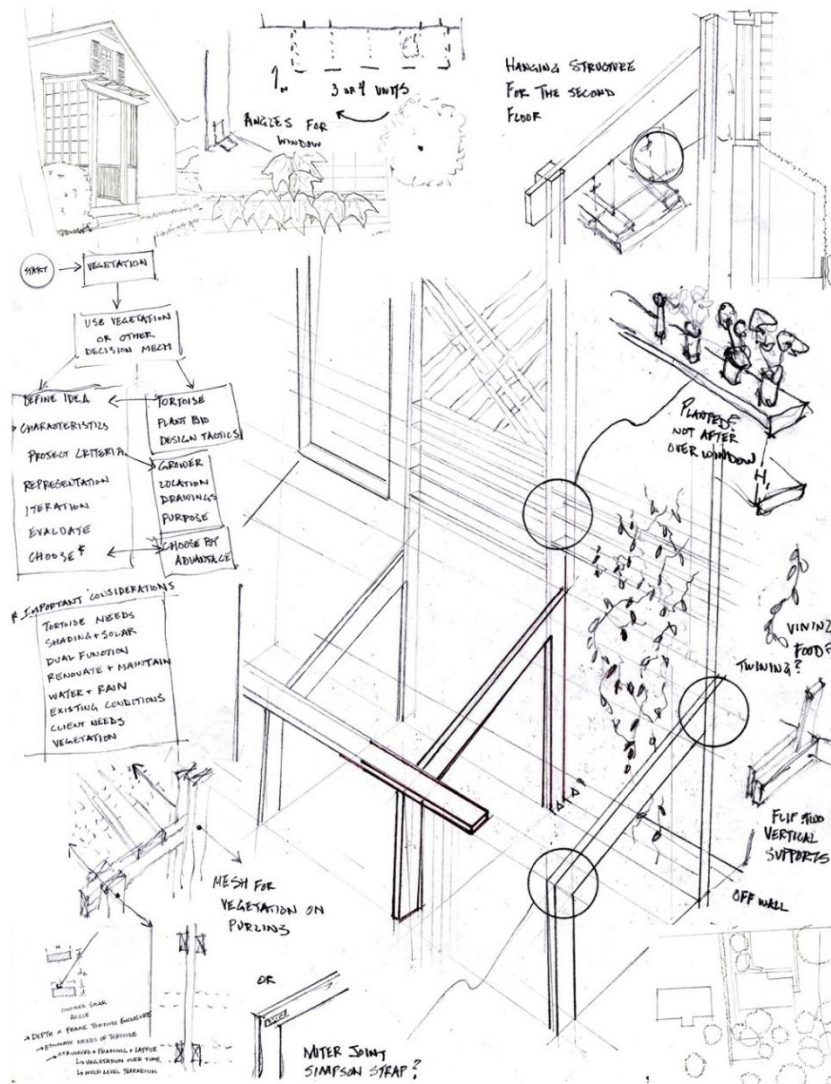 3 OR 4 UNITS
ANGLES FOR
WINDOW
HANGING STRUCTURE
FOR THE SECOND
FLOOR
START
VEGETATION
USE VEGETATION
OR OTHER
DECISION MECH
DEFINE IDEA
CHARACTERISTICS
PROJECT CRITERIA
REPRESENTATION
ITERATION
EVALUATE
CHOOSE *
TORTOISE
PLANT BIO
DESIGN TACTICS
GROWER
LOCATION
DRAWINGS
PURPOSE
CHOOSE BY
ADVANTAGE
* IMPORTANT CONSIDERATIONS
TORTOISE NEEDS
SHADING + SOLAR
DUAL FUNCTION
RENOVATE + MAINTAIN
WATER + RAIN
EXISTING CONDITIONS
CLIENT NEEDS
VEGETATION
PLANTED?
NOT AFTER
OVER WINDOW
VINING
FOOD?
TWINING?
FLIP TWO
VERTICAL
SUPPORTS
OFF WALL
MESH FOR
VEGETATION ON
PURLINS
SOLAR
ANGLE
→ DEPTH = FRAME TORTOISE ENCLOSURE
→ ESTIMATE NEEDS OF TORTOISE
→ STRUCTURE + FRAMING + LATTICE
↳ VEGETATION OVER TIME
↳ MULTI LEVEL TERRARIUM
OR
MITER JOINT
SIMPSON STRAP?